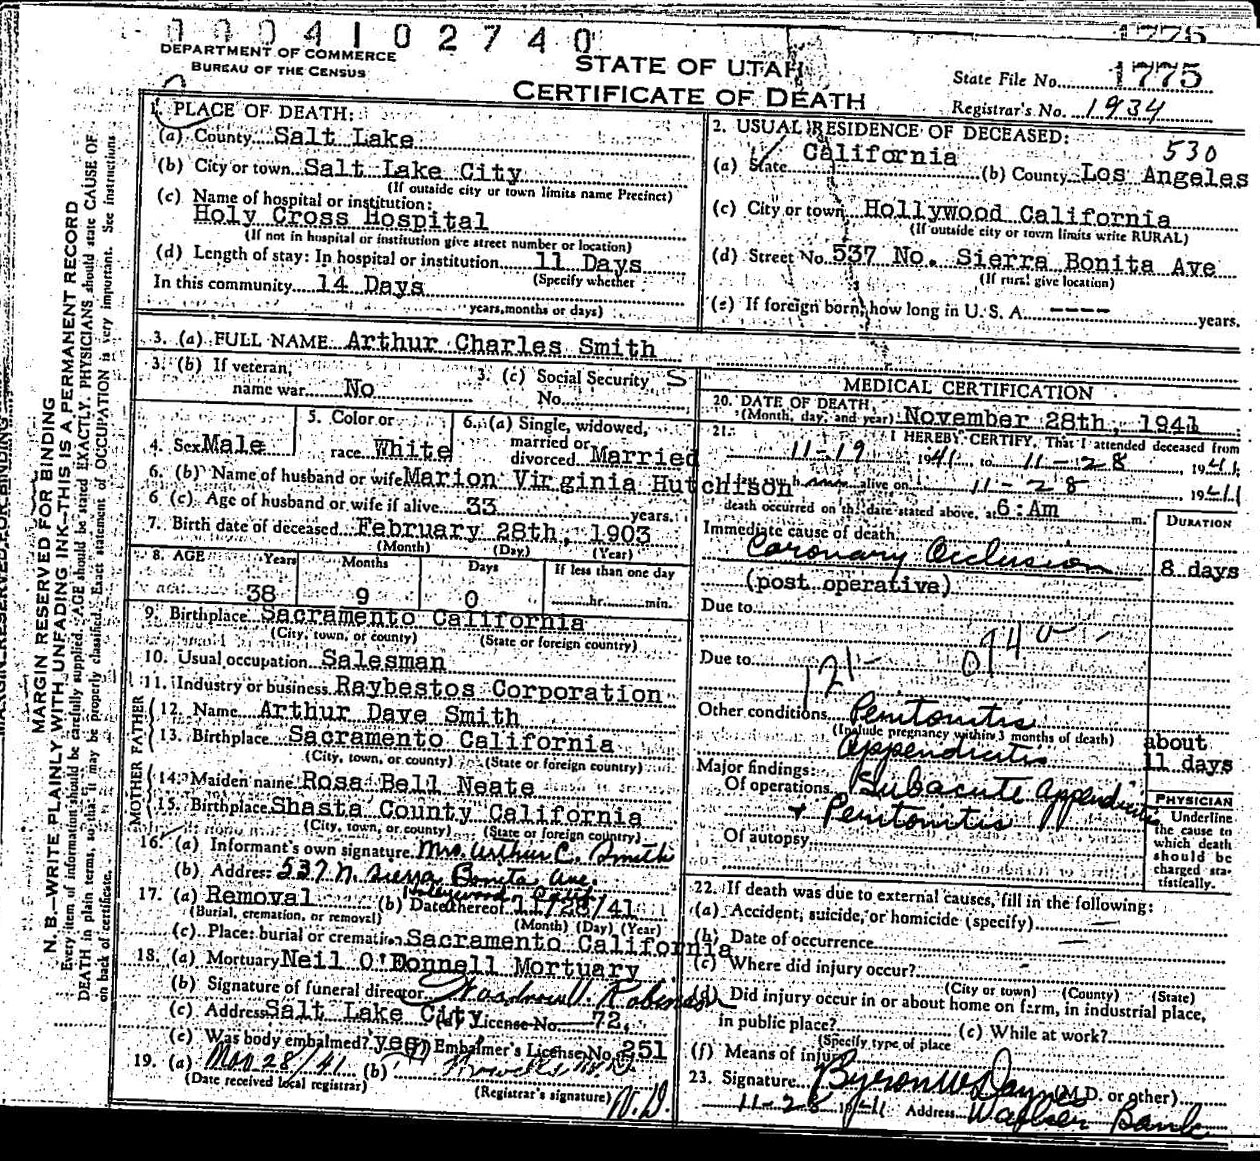 0004102740
DEPARTMENT OF COMMERCE
BUREAU OF THE CENSUS
STATE OF UTAH
CERTIFICATE OF DEATH
State File No. 1775
Registrar's No. 1934
1. PLACE OF DEATH:
(a) County Salt Lake
(b) City or town Salt Lake City
(If outside city or town limits name Precinct)
(c) Name of hospital or institution:
Holy Cross Hospital
(If not in hospital or institution give street number or location)
(d) Length of stay: In hospital or institution 11 Days
(Specify whether
In this community 14 Days
years, months or days)
2. USUAL RESIDENCE OF DECEASED: 530
(a) State California (b) County Los Angeles
(c) City or town Hollywood California
(If outside city or town limits write RURAL)
(d) Street No. 537 No. Sierra Bonita Ave
(If rural give location)
(e) If foreign born, how long in U. S. A. ---- years.
3. (a) FULL NAME Arthur Charles Smith
3. (b) If veteran,
name war No
3. (c) Social Security S
No.
4. Sex Male
5. Color or
race White
6. (a) Single, widowed,
married or
divorced Married
6. (b) Name of husband or wife Marion Virginia Hutchison
6 (c). Age of husband or wife if alive 33 years.
7. Birth date of deceased February 28th, 1903
(Month) (Day) (Year)
8. AGE Years Months Days If less than one day
38 9 0 hr. min.
9. Birthplace Sacramento California
(City, town, or county) (State or foreign country)
10. Usual occupation Salesman
11. Industry or business Raybestos Corporation
FATHER
12. Name Arthur Dave Smith
13. Birthplace Sacramento California
(City, town, or county) (State or foreign country)
MOTHER
14. Maiden name Rosa Bell Neate
15. Birthplace Shasta County California
(City, town, or county) (State or foreign country)
16. (a) Informant's own signature Mrs. Arthur C. Smith
(b) Address 537 N. Sierra Bonita Ave.
17. (a) Removal (b) Date thereof 11/28/41
(Burial, cremation, or removal) (Month) (Day) (Year)
(c) Place: burial or cremation Sacramento California
18. (a) Mortuary Neil O'Donnell Mortuary
(b) Signature of funeral director Woodrow V. Robinson
(c) Address Salt Lake City (d) License No. 72,
(e) Was body embalmed? yes (f) Embalmer's License No. 251
19. (a) Nov 28/41 (b)
(Date received local registrar) (Registrar's signature)
MEDICAL CERTIFICATION
20. DATE OF DEATH
(Month, day, and year) November 28th, 1941
21. I HEREBY CERTIFY, That I attended deceased from
11-19 1941, to 11-28, 1941
alive on 11-28, 1941
death occurred on the date stated above, at 6:Am m.
Immediate cause of death
Coronary Occlusion
(post operative)
DURATION
8 days
Due to
Due to
121- 074
Other conditions Peritonitis
(Include pregnancy within 3 months of death)
Appendicitis
about
11 days
Major findings:
Of operations Subacute Appendicitis
+ Peritonitis
Of autopsy
PHYSICIAN
Underline
the cause to
which death
should be
charged sta-
tistically.
22. If death was due to external causes, fill in the following:
(a) Accident, suicide, or homicide (specify) —
(b) Date of occurrence —
(c) Where did injury occur? -
(City or town) (County) (State)
(d) Did injury occur in or about home on farm, in industrial place,
in public place? (e) While at work?
(Specify type of place
(f) Means of injury
23. Signature Byron W Daynes (M.D. or other)
11-28 1941 Address Walker Bank
MARGIN RESERVED FOR BINDING
N. B.—WRITE PLAINLY WITH UNFADING INK—THIS IS A PERMANENT RECORD
Every item of information should be carefully supplied. AGE should be stated EXACTLY. PHYSICIANS should state CAUSE OF
DEATH in plain terms, so that it may be properly classified. Exact statement of OCCUPATION is very important. See instructions
on back of certificate.